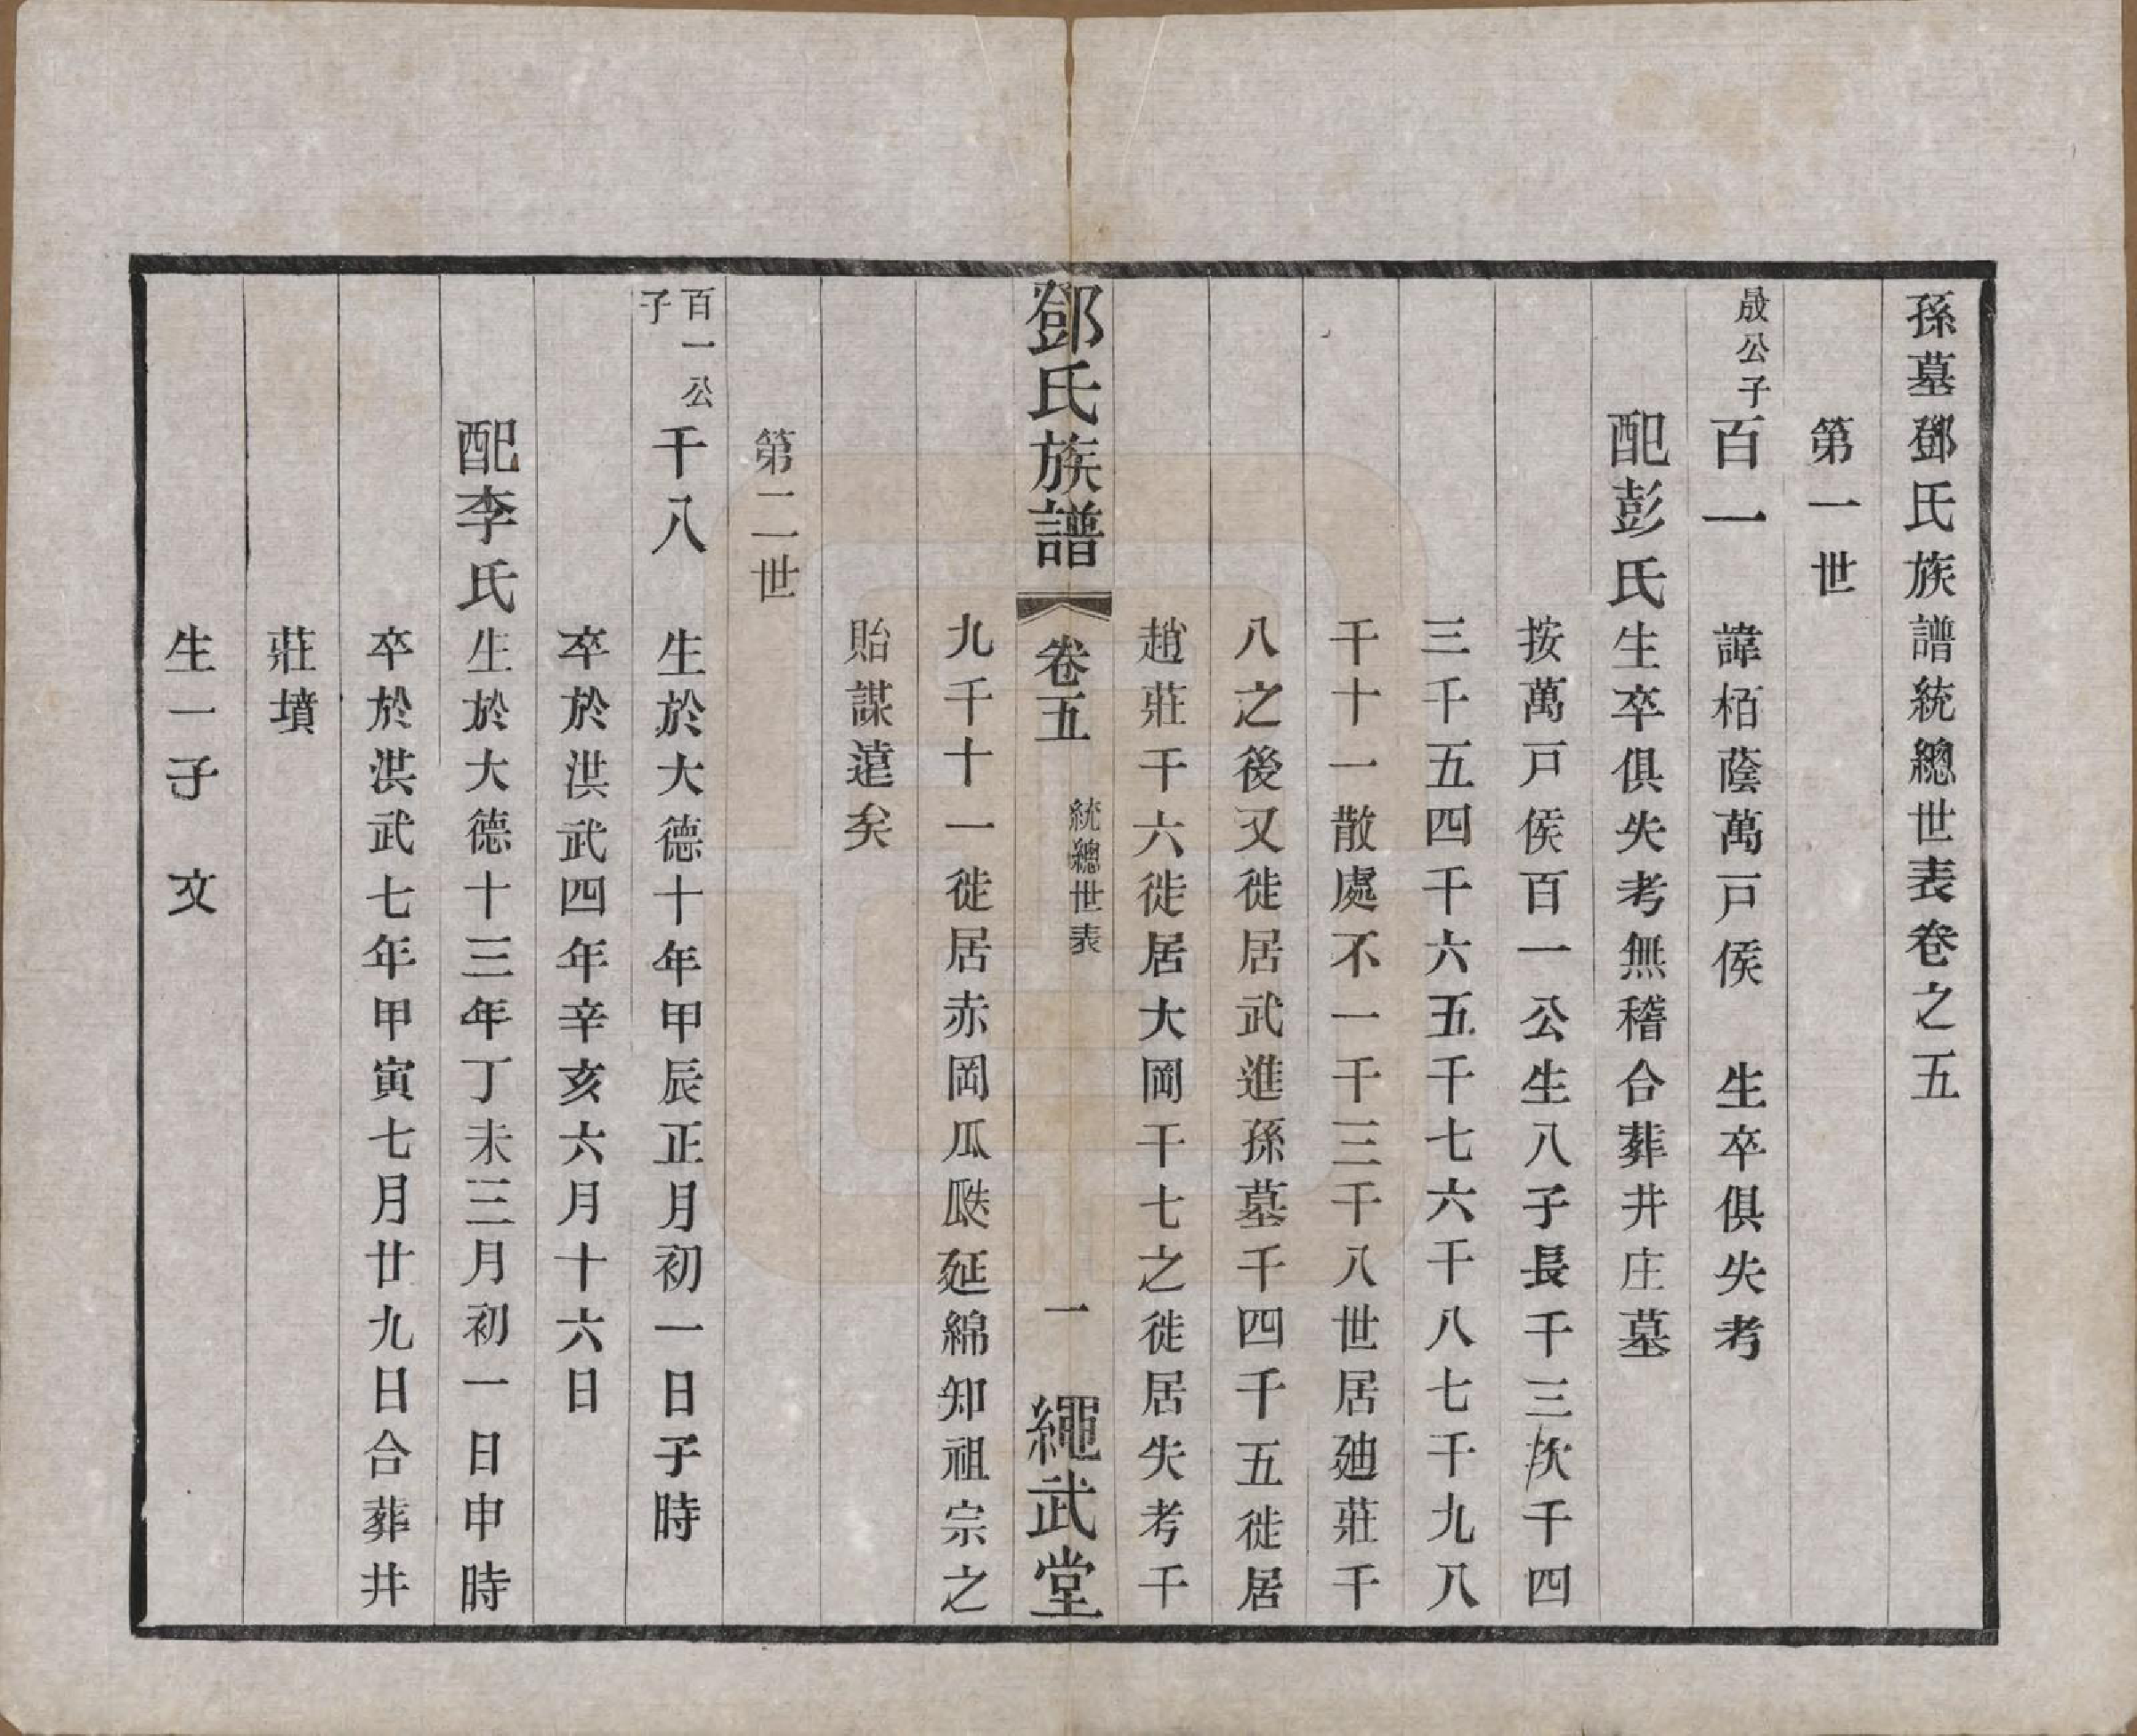 孫墓鄧氏族譜統總世表卷之五
第一世
晟公子
百一 諱栢蔭萬戸侯 生卒俱失考
配彭氏 生卒俱失考無稽合葬井庄墓
按萬戸侯百一公生八子長千三次千四
三千五四千六五千七六千八七千九八
千十一散處不一千三千八世居廸莊千
八之後又徙居武進孫墓千四千五徙居
趙莊千六徙居大岡千七之徙居失考千
九千十一徙居赤岡瓜瓞延綿知祖宗之
貽謀遠矣
鄧氏族譜 卷五 統總世表 一 繩武堂
第二世
百一公子
千八 生於大德十年甲辰正月初一日子時
卒於洪武四年辛亥六月十六日
配李氏 生於大德十三年丁未三月初一日申時
卒於洪武七年甲寅七月廿九日合葬井
莊墳
生一子 文